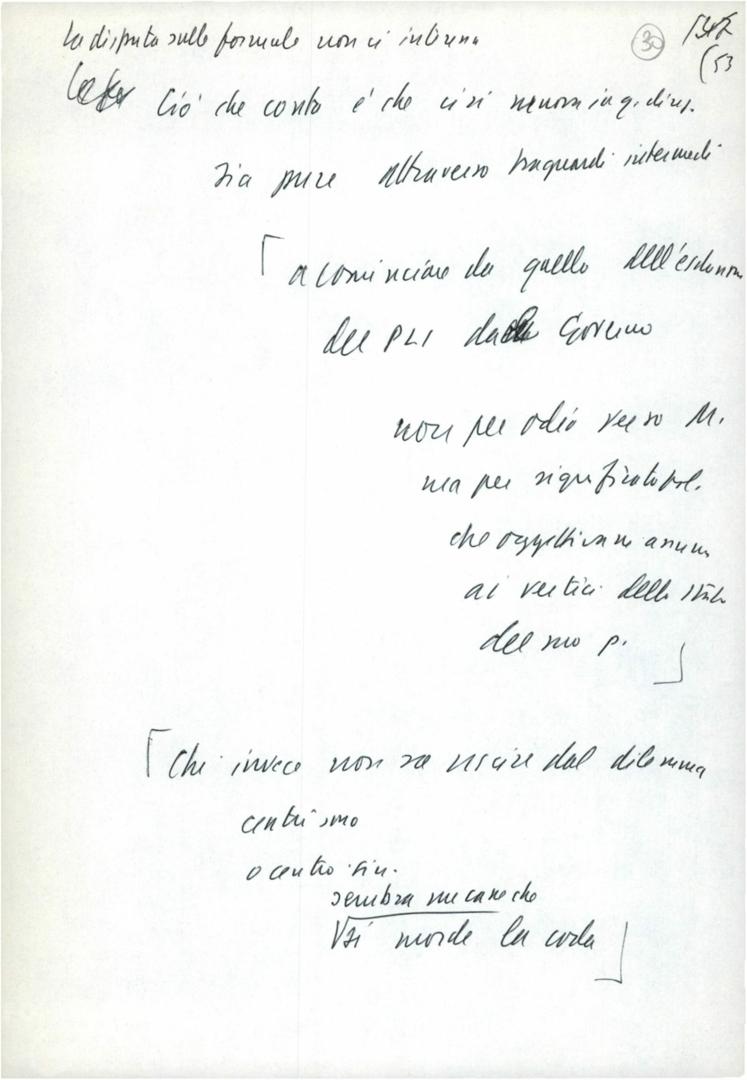 La disputa sulle formule non ci interessa
30
(53
Ciò che conta è che ci si muova in q. direz.
sia pure attraverso traguardi intermedi
a cominciare da quello dell'esclusione
del PLI dal Governo
non per odio verso M.
ma per significato pol.
che oggettivam assume
ai vertici dello Stato
del suo p.
Chi invece non sa uscire dal dilemma
centrismo
o centro sin.
sembra un cane che
si morde la coda